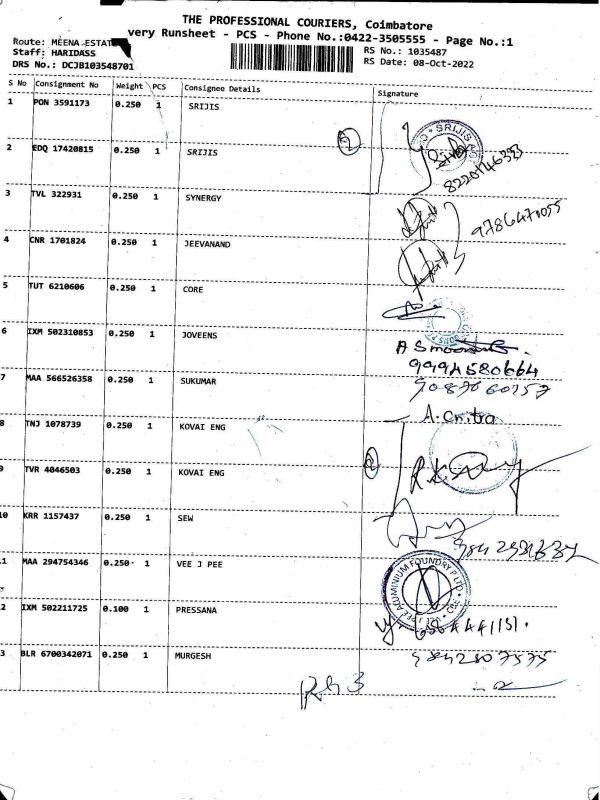 THE PROFESSIONAL COURIERS, Coimbatore
very Runsheet - PCS - Phone No.:0422-3505555 - Page No.:1
Route: MEENA ESTAT
Staff: HARIDASS
DRS No.: DCJB103548701
RS No.: 1035487
RS Date: 08-Oct-2022
S No Consignment No Weight PCS Consignee Details Signature
1 PON 3591173 0.250 1 SRIJIS
2 EDQ 17420815 0.250 1 SRIJIS
8220146333
3 TVL 322931 0.250 1 SYNERGY
9786471055
4 CNR 1701824 0.250 1 JEEVANAND
5 TUT 6210606 0.250 1 CORE
6 IXM 502310853 0.250 1 JOVEENS
9994580664
7 MAA 566526358 0.250 1 SUKUMAR
8 TNJ 1078739 0.250 1 KOVAI ENG
A.Chitra
9 TVR 4046503 0.250 1 KOVAI ENG
10 KRR 1157437 0.250 1 SEW
1 MAA 294754346 0.250 1 VEE J PEE
2 IXM 502211725 0.100 1 PRESSANA
3 BLR 6700342071 0.250 1 MURGESH
9842807575